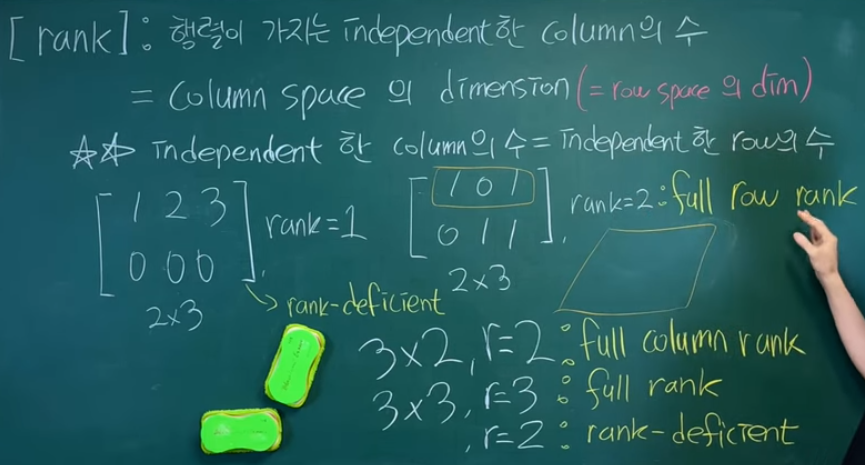 [rank]: 행렬이 가지는 independent한 column의 수
= column space 의 dimension (= row space 의 dim)
☆☆ independent 한 column의 수 = independent한 row의 수
[1 2 3
0 0 0], rank=1
2x3
→ rank-deficient
[1 0 1
0 1 1], rank=2 : full row rank
2x3
3x2, r=2 : full column rank
3x3, r=3 : full rank
, r=2 : rank-deficient